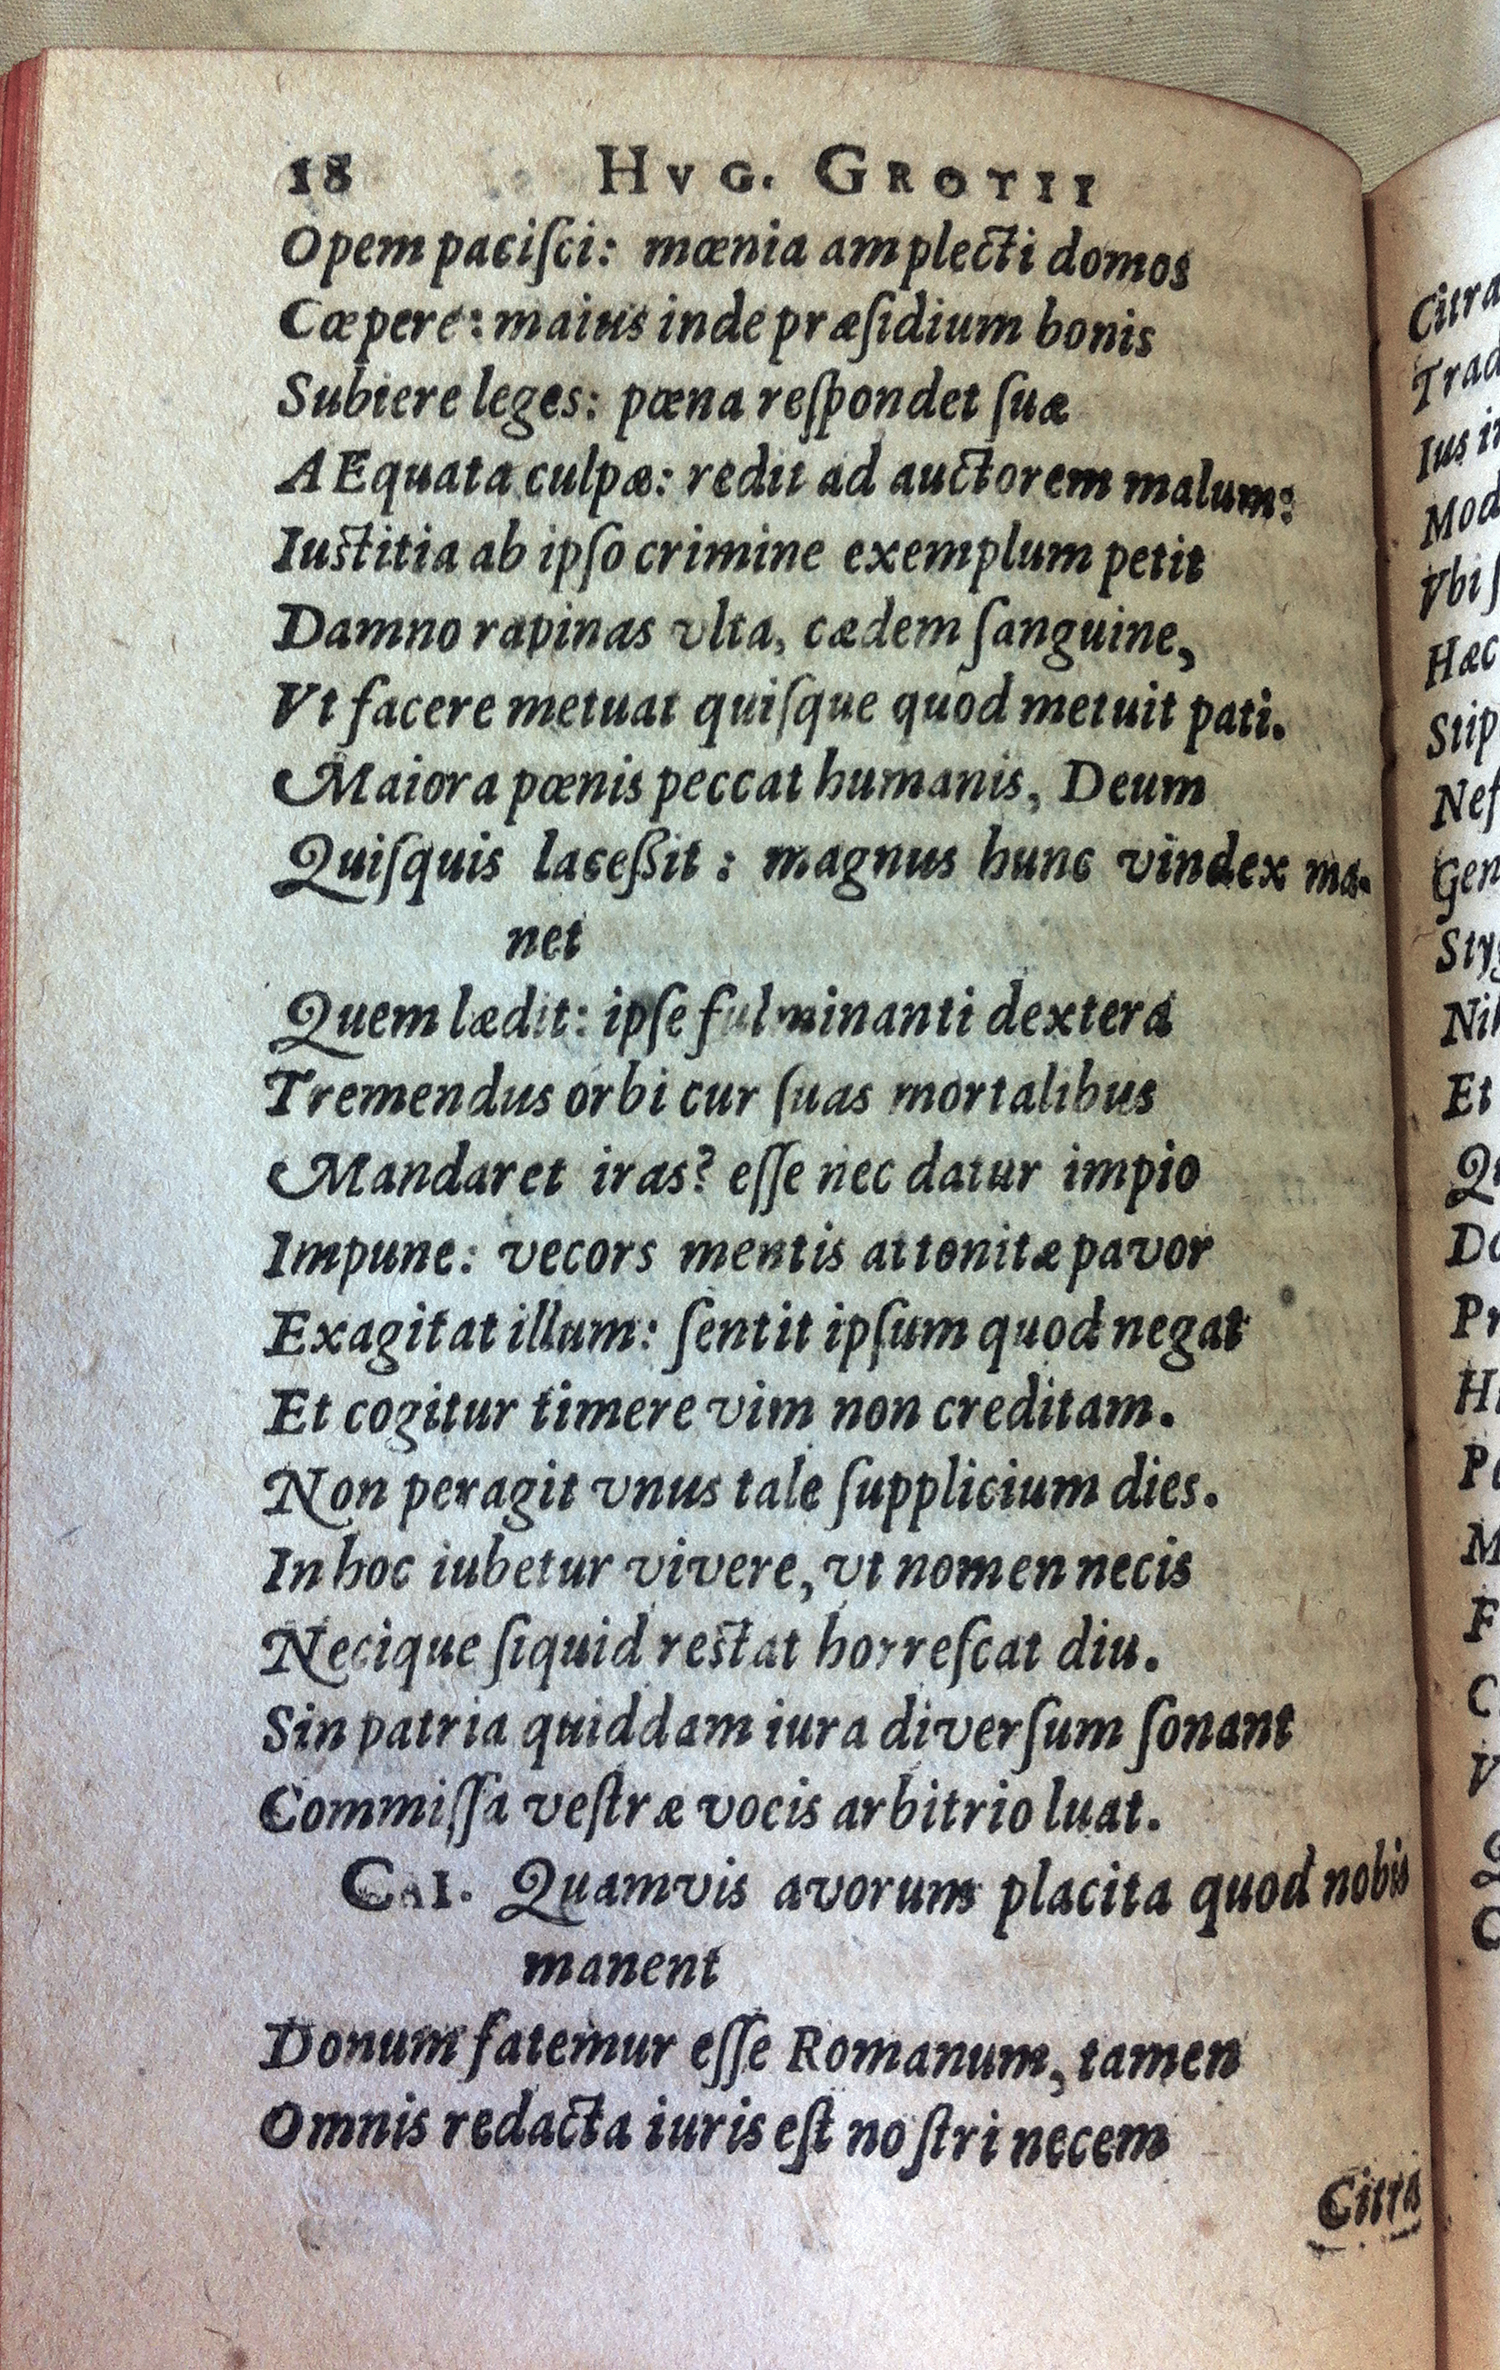 18 HVG. GROTII
Opem paciſci: mœnia amplecti domos
Cœpere: maius inde præſidium bonis
Subiere leges: pœna reſpondet ſuæ
AEquata culpæ: redit ad auctorem malum:
Iustitia ab ipſo crimine exemplum petit
Damno rapinas vlta, cædem ſanguine,
Vt facere metuat quiſque quod metuit pati.
Maiora pœnis peccat humanis, Deum
Quiſquis laceßit: magnus hunc vindex ma-
net
Quem lædit: ipſe fulminanti dextera
Tremendus orbi cur ſuas mortalibus
Mandaret iras? eſſe nec datur impio
Impune: vecors mentis attonitæ pavor
Exagitat illum: ſentit ipſum quod negat
Et cogitur timere vim non creditam.
Non peragit vnus tale ſupplicium dies.
In hoc iubetur vivere, vt nomen necis
Necique ſiquid restat horreſcat diu.
Sin patria quiddam iura diverſum ſonant
Commiſſa veſtræ vocis arbitrio luat.
CAI. Quamvis avorum placita quod nobis
manent
Donum fatemur eſſe Romanum, tamen
Omnis redacta iuris eſt noſtri necem
Citra
Citra
Trad
Ius i
Mod
Vbi ſ
Hæc
Stip
Neſ
Gen
Sty
Ni
Et
Qu
Do
Pr
H
P
M
F
C
V
Q
C